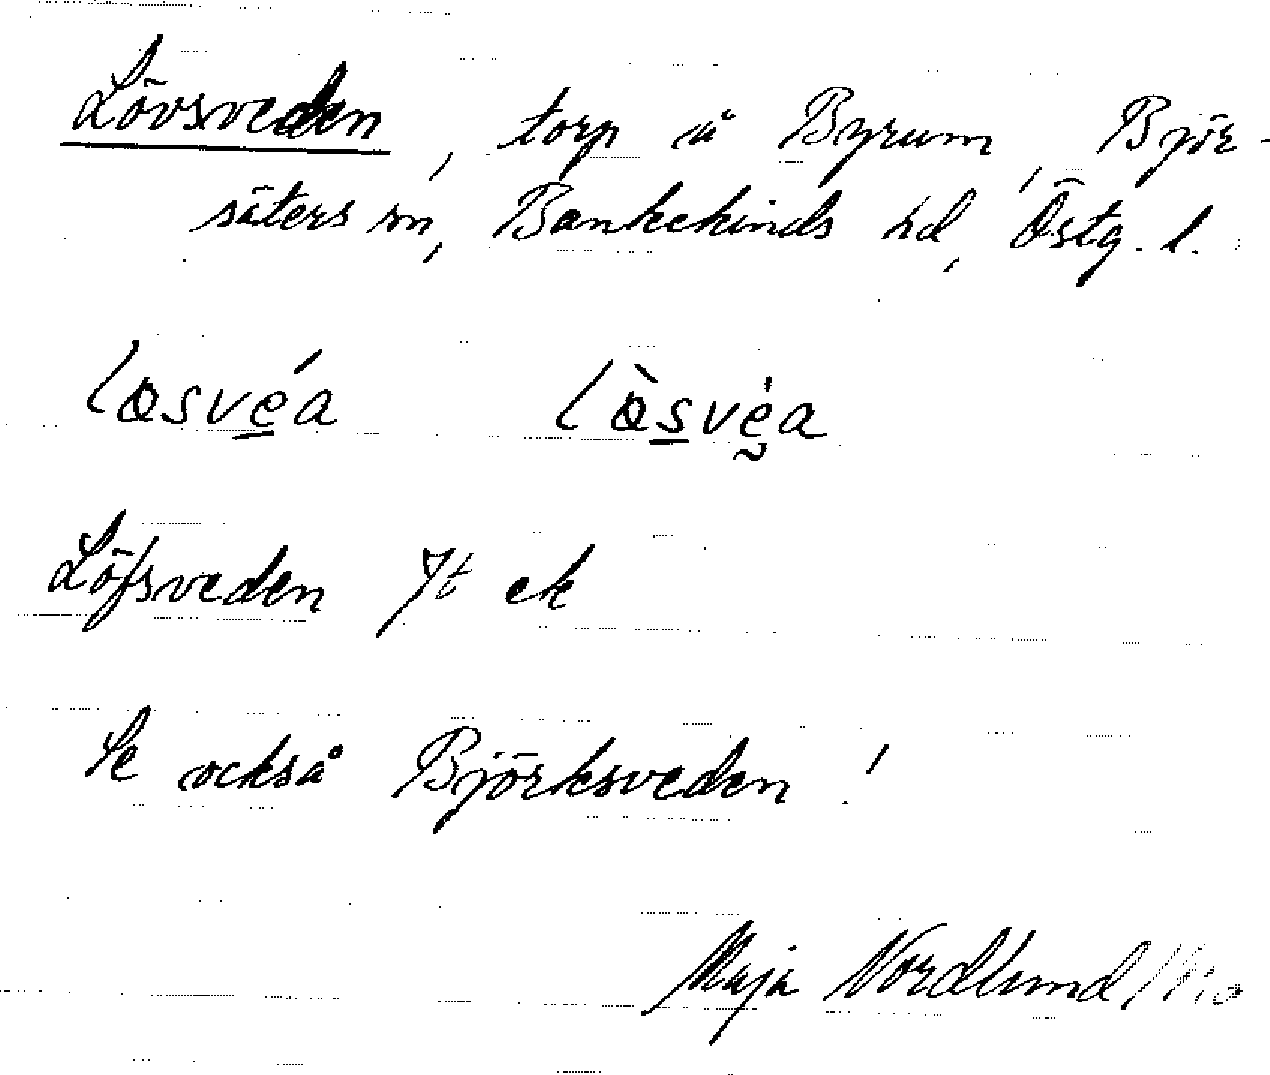 Lövsveden, torp å Byrum, Björ-
säters sn, Bankekinds hd, Östg. l.
Löfsveden Jt ek
Se också Björksveden!
Maja Nordlund